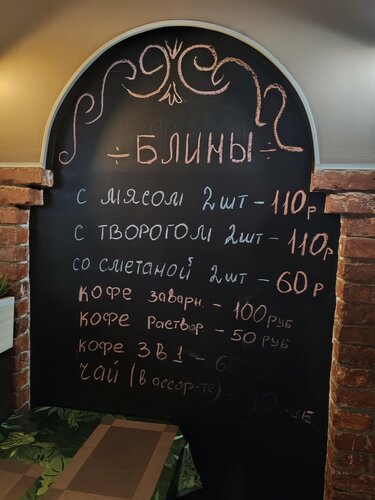 ÷ БЛИНЫ ÷
С МЯСОМ 2ШТ - 110р
С ТВОРОГОМ 2ШТ - 110р
СО СМЕТАНОЙ 2ШТ - 60р
КОФЕ заварн. - 100 РУБ
КОФЕ раствор - 50 РУБ
КОФЕ 3В1 -
ЧАЙ (в ассор-те) -